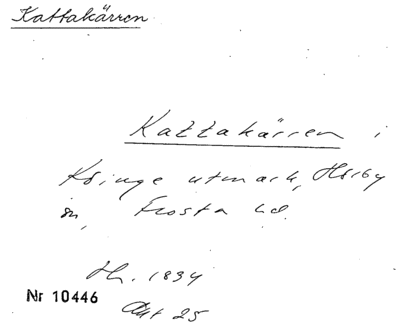 Kattakärren
Kattakärren i
Kringe utmark, Hörby
sn, Frosta hd.
Hr. 1894
Nr 10446
Akt 25